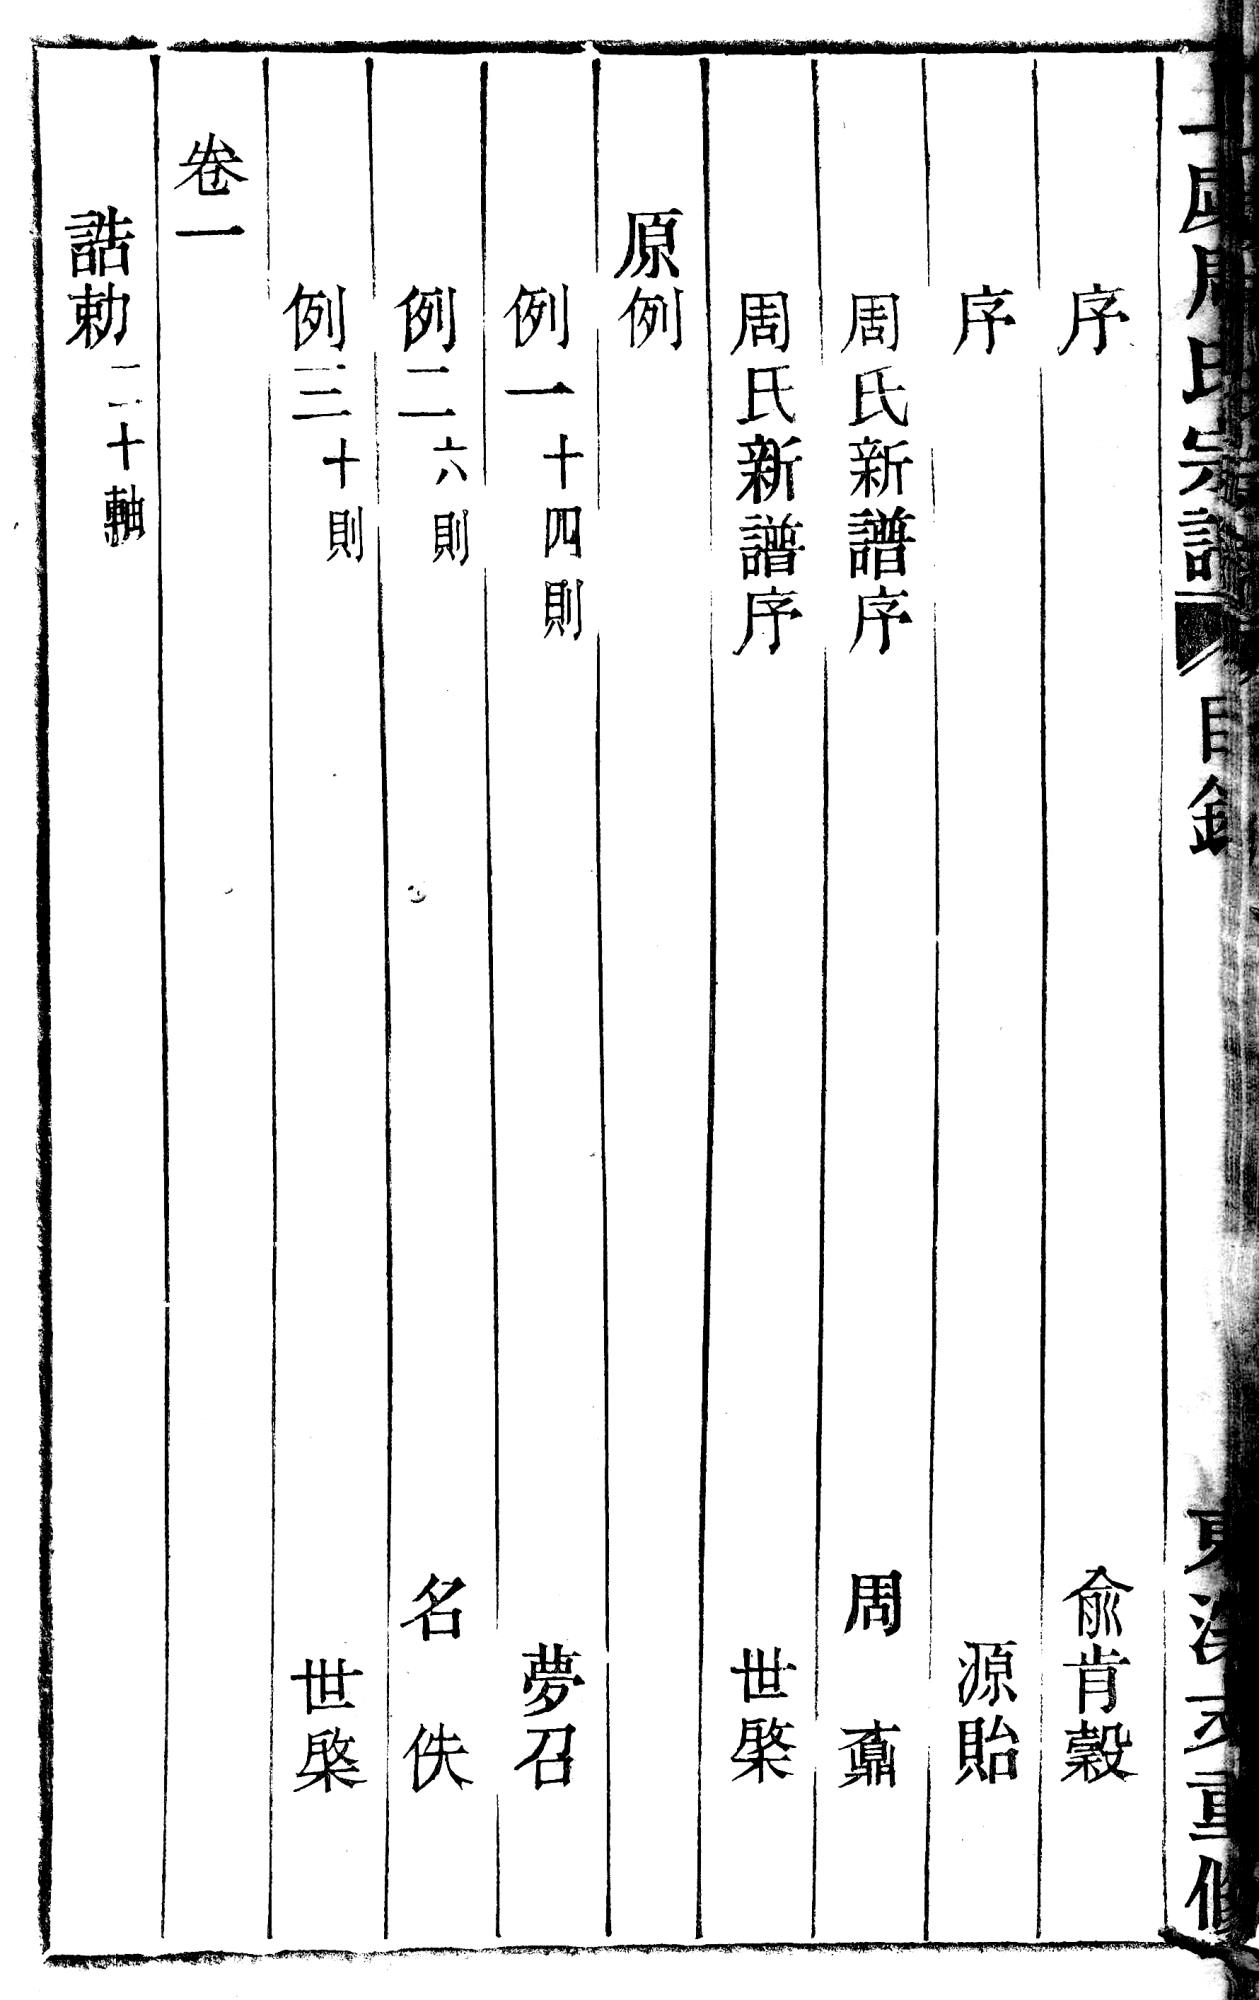 周氏宗譜 目錄 重修
序 俞肯穀
序 源貽
周氏新譜序 周 鼒
周氏新譜序 世棨
原例
例一 十四則 夢召
例二 六則 名佚
例三 十則 世棨
卷一
誥勅 二十軸